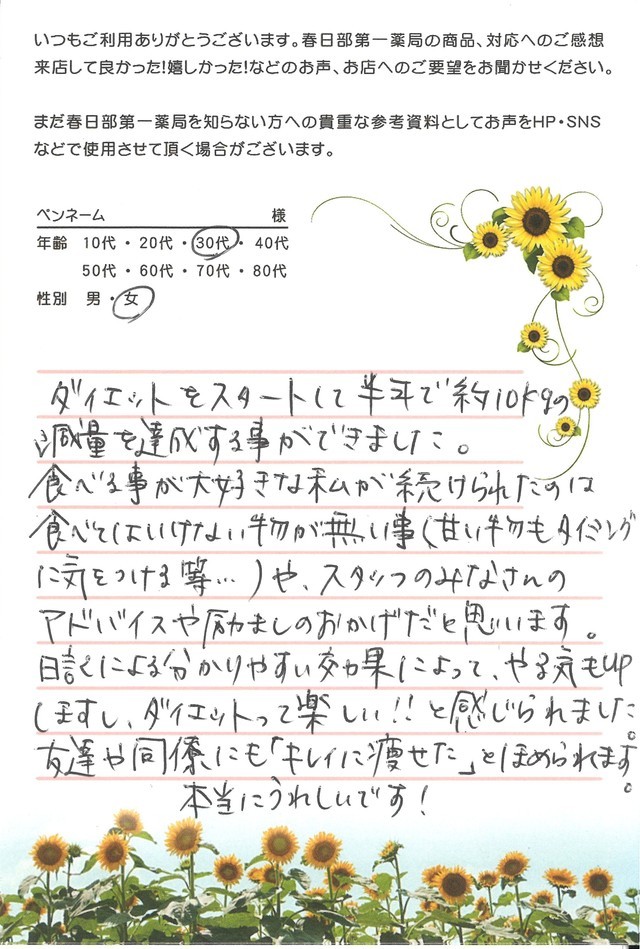 いつもご利用ありがとうございます。春日部第一薬局の商品、対応へのご感想
来店して良かった!嬉しかった!などのお声、お店へのご要望をお聞かせください。
まだ春日部第一薬局を知らない方への貴重な参考資料としてお声をHP・SNS
などで使用させて頂く場合がございます。
ペンネーム 様
年齢 10代・20代・30代・40代
50代・60代・70代・80代
性別 男・女
ダイエットをスタートして半年で約10kgの
減量を達成する事ができました。
食べる事が大好きな私が続けられたのは
食べてはいけない物が無い事(甘い物もタイミング
に気をつける等…)や、スタッフのみなさんの
アドバイスや励ましのおかげだと思います。
日誌による分かりやすい効果によって、やる気もUP
しますし、ダイエットって楽しい!!と感じられました。
友達や同僚にも「キレイに痩せた」とほめられます。
本当にうれしいです!